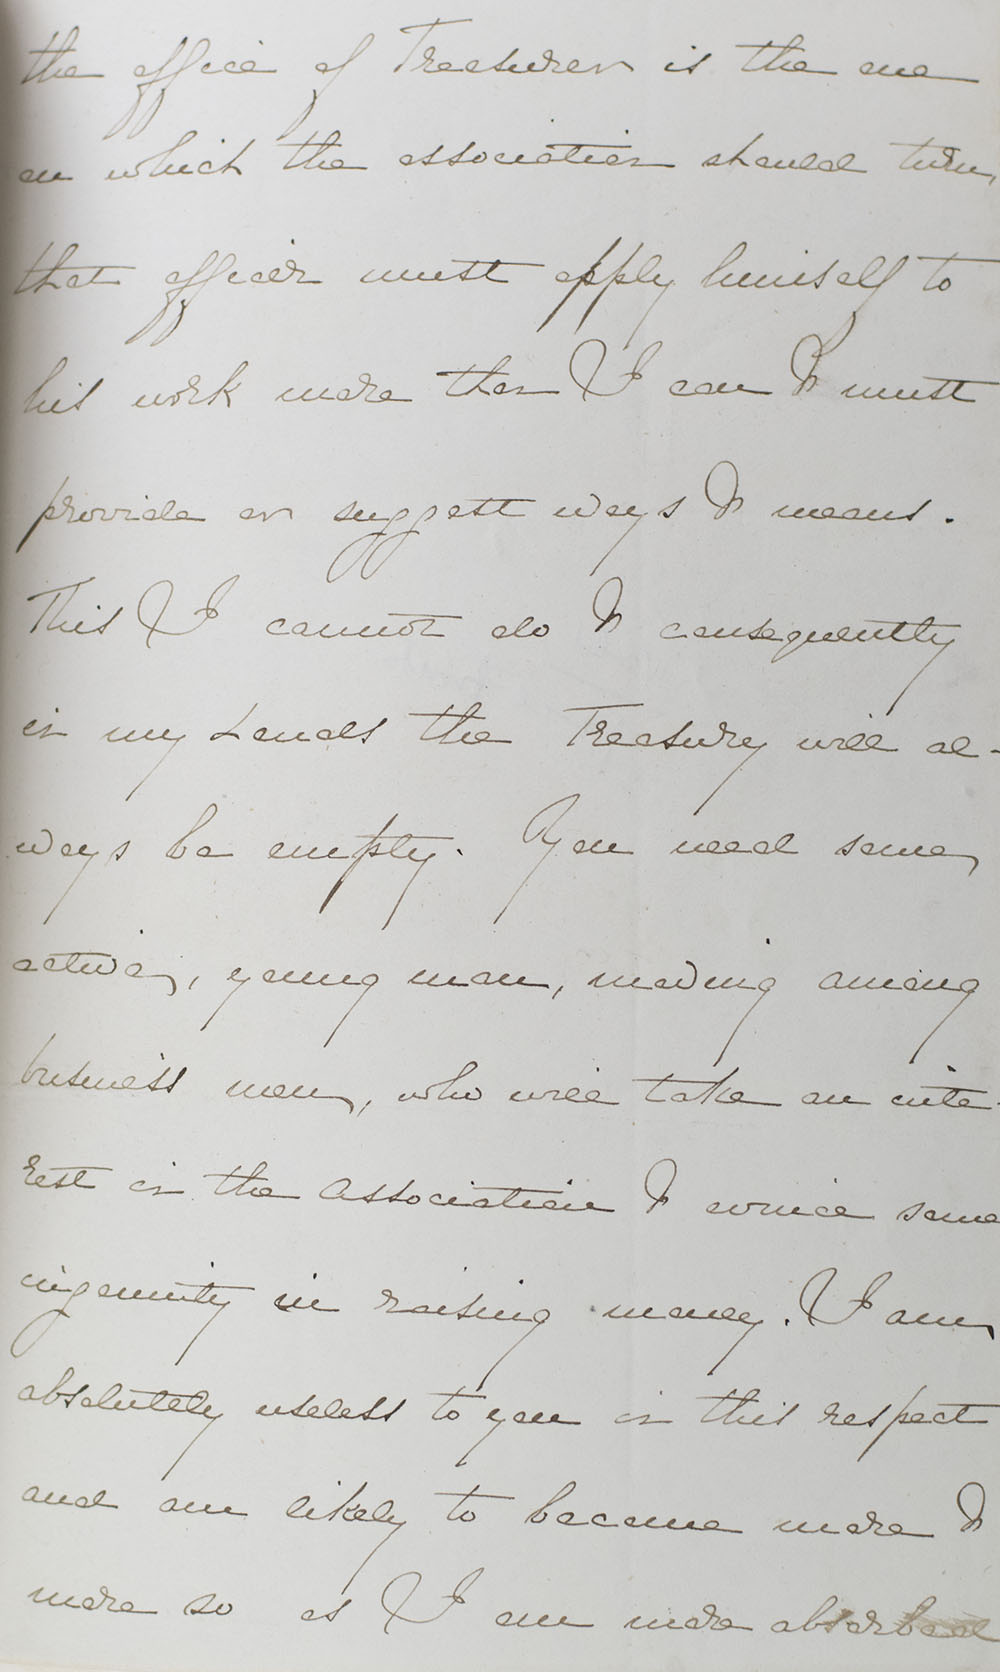 the office of Treasurer is the one
on which the association should turn,
that officer must apply himself to
his work more than I can & must
provide or suggest ways & means.
This I cannot do & consequently
in my hands the Treasury will al-
ways be empty. You need some
active, young man, moving among
business men, who will take an inte-
rest in the Association & evince some
ingenuity in raising money. I am
absolutely useless to you in this respect
and am likely to become more &
more so as I am more absorbed